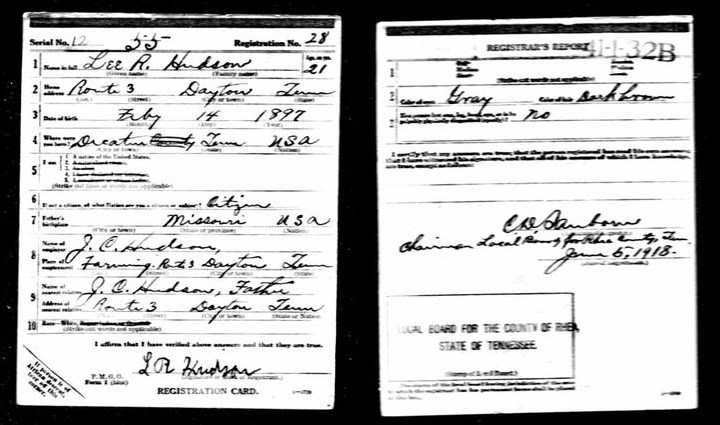 Serial No. 12 55 Registration No. 28
1 Name in full Lee R. Hudson Age, in yrs. 21
(Given name) (Family name)
2 Home address Route 3 Dayton Tenn
(No.) (Street) (City or town) (State)
3 Date of birth Feby 14 1897
(Month) (Day) (Year)
4 Where were you born? Decatur County Tenn USA
(City or town) (State) (Nation)
5 I am
1. A native of the United States.
2. A naturalized citizen.
3. An alien.
(Strike out lines or words not applicable)
6 If not a citizen, of what Nation are you a citizen or subject? Citizen
7 Father's birthplace Missouri USA
(City or town) (State or province) (Nation)
8 Name of employer J. C. Hudson,
Place of employment Farming Rt 3 Dayton Tenn
9 Name of nearest relative J. C. Hudson, Father
Address of nearest relative Route 3 Dayton Tenn
10 Race—White,
(Strike out words not applicable)
I affirm that I have verified above answers and that they are true.
L R Hudson
P. M. G. O.
Form 1 (blue)
(Signature or mark of registrant.)
REGISTRATION CARD.
If person is of
African descent,
tear off this
corner.
REGISTRAR'S REPORT 41-1-32B
1
(Strike out words not applicable)
2 Color of eyes Gray Color of hair Dark brown
3 No
I certify that my answers are true, that the person registered has read his own answers,
that I have witnessed his signature, and that all of his answers of which I have knowledge,
are true, except as follows:
C D Sanborn
Chairman Local Board for Rhea County, Tenn.
June 5, 1918.
LOCAL BOARD FOR THE COUNTY OF RHEA,
STATE OF TENNESSEE.
(Stamp of Local Board.)
The stamp of the local board having jurisdiction of the area
in which the registrant has his permanent home shall be placed
in this box.